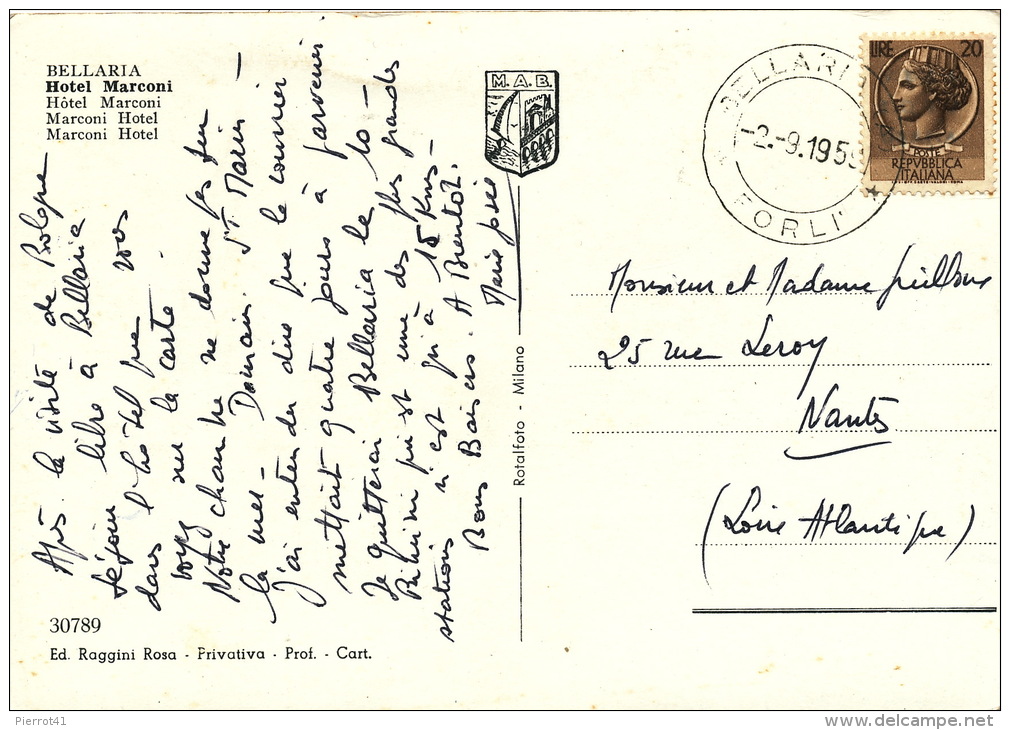 BELLARIA
Hotel Marconi
Hôtel Marconi
Marconi Hotel
Marconi Hotel
M.A.B.
BELLARIA
-2.-9.195
FORLI'
LIRE 20
POSTE
REPVBBLICA
ITALIANA
Après la visite de Bologne
séjour libre à Bellaria
dans l'hôtel que vous
voyez sur la carte.
Notre chambre ne donne pas sur
la mer - Demain St Marin -
J'ai entendu dire que le courrier
mettait quatre jours à parvenir
Je quitterai Bellaria le 10 -
Rimini qui est une des plus grandes
stations n'est qu'à 15 Kms -
Bons Baisers. A Bientôt.
Marie José
Rotalfoto - Milano
Monsieur et Madame
25 rue Leroy
Nantes
(Loire Atlantique)
30789
Ed. Raggini Rosa - Privativa - Prof. - Cart.
Pierrot41
www.delcampe.net